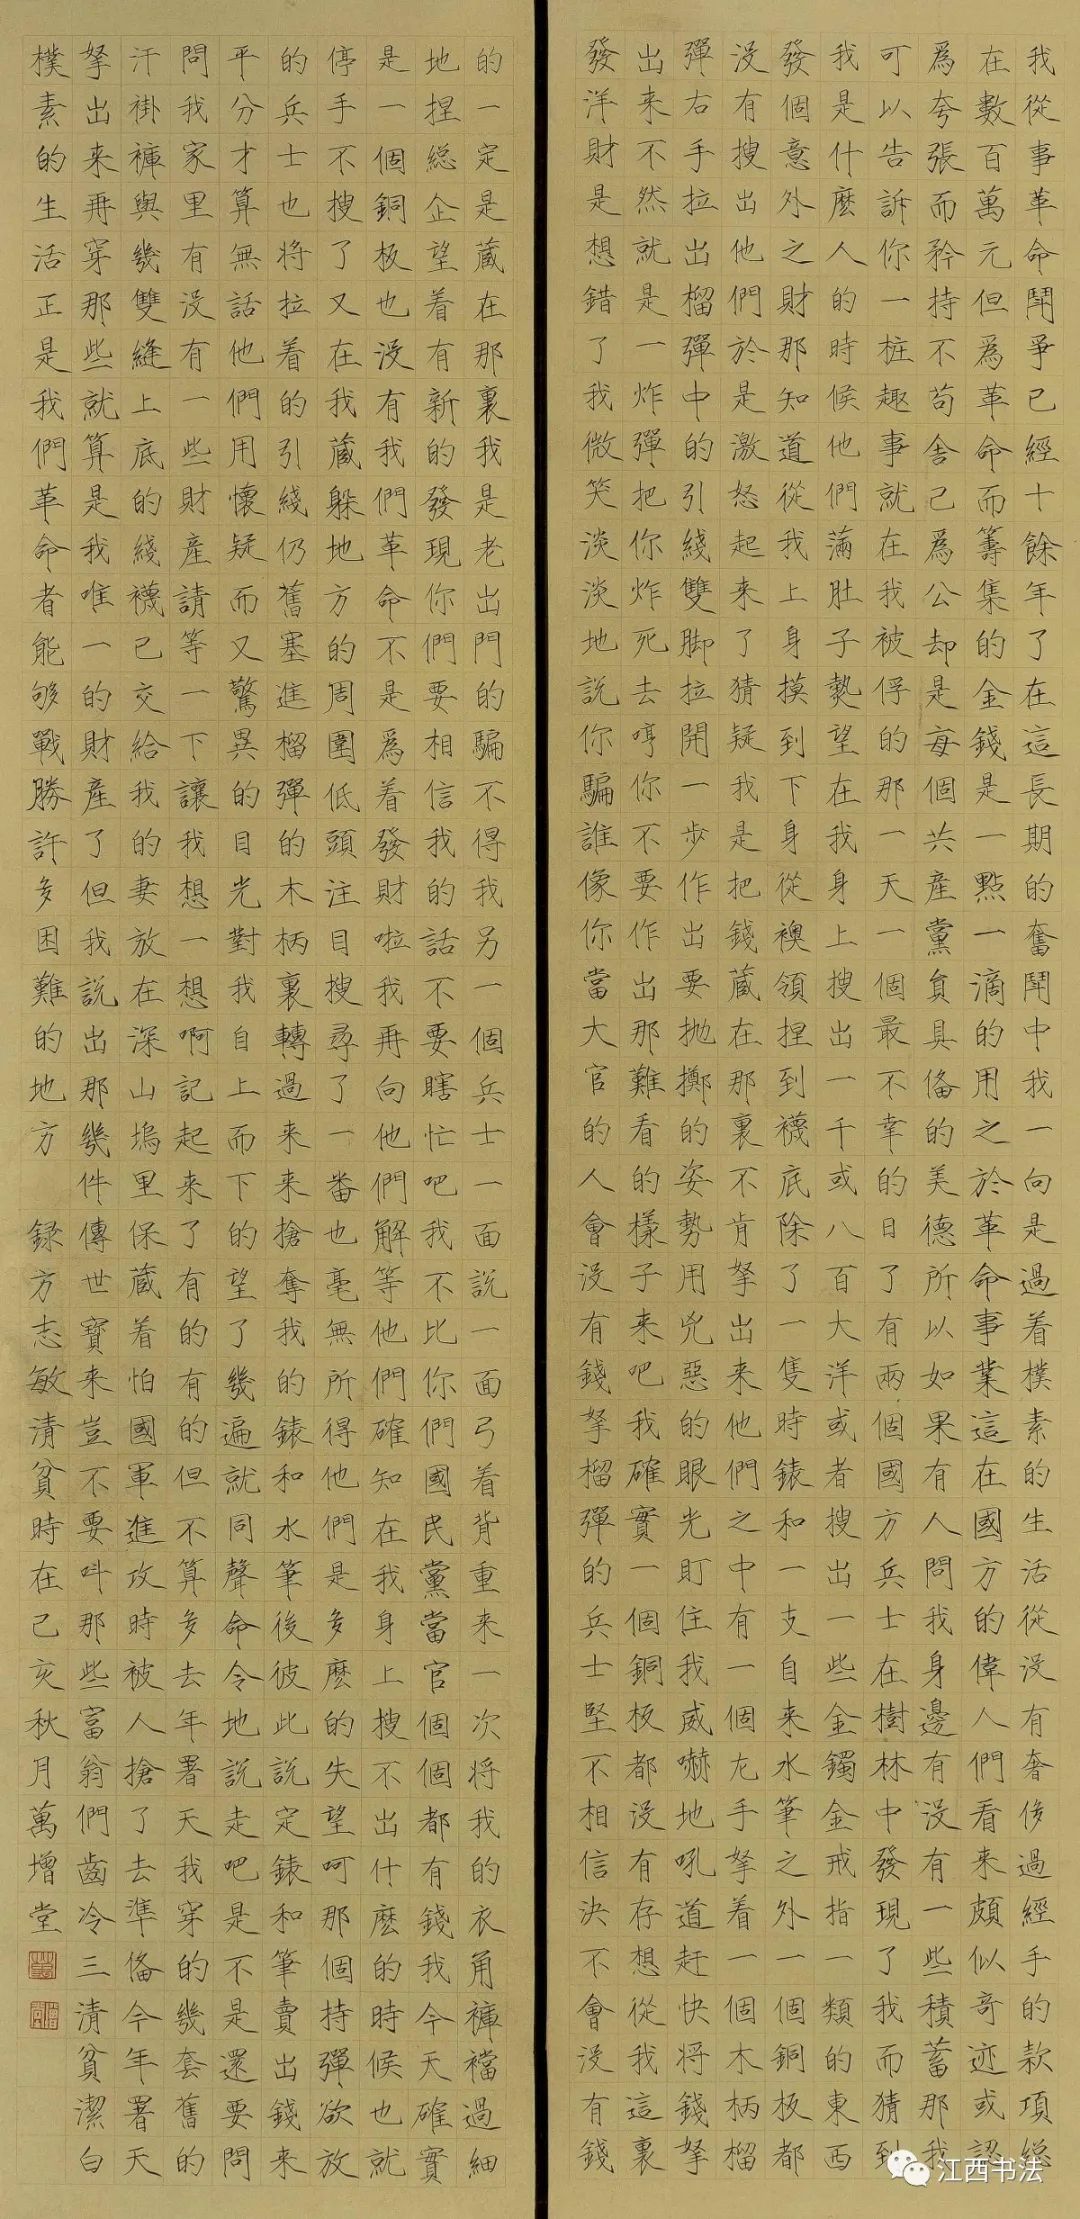 我從事革命鬥爭已經十餘年了在這長期的奮鬥中我一向是過着樸素的生活從没有奢侈過經手的款項總
在數百萬元但爲革命而籌集的金錢是一點一滴的用之於革命事業這在國方的偉人們看来頗似奇迹或認
爲夸張而矜持不苟舍己爲公却是每個共産黨員具俻的美德所以如果有人問我身邊有没有一些積蓄那我
可以告訴你一樁趣事就在我被俘的那一天一個最不幸的日了有兩個國方兵士在樹林中發現了我而猜到
我是什麽人的時候他們滿肚子熱望在我身上搜出一千或八百大洋或者搜出一些金鐲金戒指一類的東西
發個意外之財那知道從我上身摸到下身從襖領捏到襪底除了一隻時錶和一支自来水筆之外一個銅板都
没有搜出他們於是激怒起来了猜疑我是把錢藏在那裏不肯拏出来他們之中有一個左手拏着一個木柄榴
彈右手拉出榴彈中的引綫雙脚拉開一步作出要抛擲的姿勢用兇惡的眼光盯住我威嚇地吼道赶快将錢拏
出来不然就是一炸彈把你炸死去哼你不要作出那難看的樣子来吧我確實一個銅板都没有存想從我這裏
發洋財是想錯了我微笑淡淡地說你騙誰像你當大官的人會没有錢拏榴彈的兵士堅不相信決不會没有錢
的一定是藏在那裏我是老出門的騙不得我另一個兵士一面説一面弓着背重来一次将我的衣角褲襠過細
地捏總企望着有新的發現你們要相信我的話不要瞎忙吧我不比你們國民黨當官個個都有錢我今天確實
是一個銅板也没有我們革命不是爲着發財啦我再向他們解等他們確知在我身上搜不出什麽的時候也就
停手不搜了又在我藏躲地方的周圍低頭注目搜尋了一番也毫無所得他們是多麽的失望呵那個持彈欲放
的兵士也将拉着的引綫仍舊塞進榴彈的木柄裏轉過来来搶奪我的錶和水筆後彼此説定錶和筆賣出錢来
平分才算無話他們用懷疑而又驚異的目光對我自上而下的望了幾遍就同聲命令地說走吧是不是還要問
問我家里有没有一些財産請等一下讓我想一想啊記起来了有的有的但不算多去年暑天我穿的幾套舊的
汗褂褲與幾雙縫上底的綫襪已交給我的妻放在深山塢里保藏着怕國軍進攻時被人搶了去準俻今年暑天
拏出来再穿那些就算是我唯一的財産了但我説出那幾件傳世寶来豈不要叫那些富翁們齒冷三清貧潔白
樸素的生活正是我們革命者能够戰勝許多困難的地方 録方志敏清貧時在己亥秋月萬增堂
江西书法